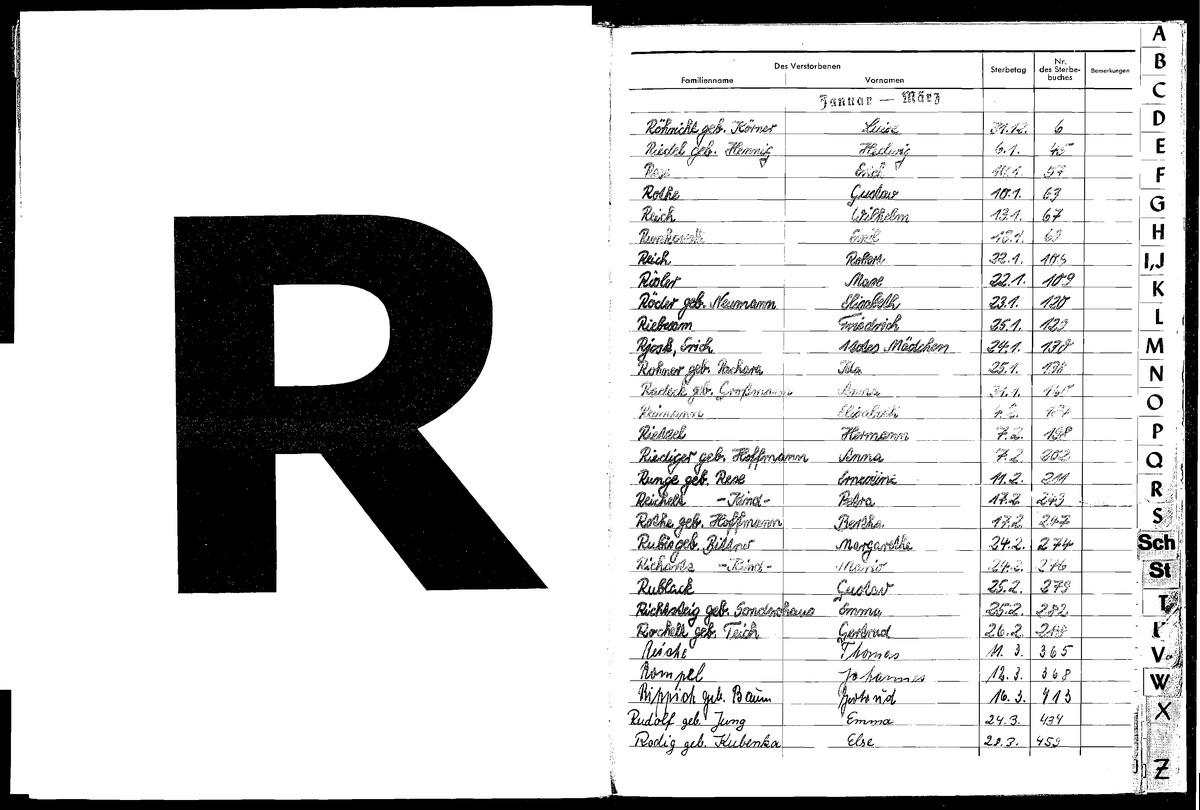 R
Des Verstorbenen
Familienname Vornamen Sterbetag Nr. des Sterbe-buches Bemerkungen
Januar — März
Röhnicht geb. Körner Luise 31.12. 6
Riedel geb. Hennig Hedwig 6.1. 45
Erich 57
Rothe Gustav 10.1. 63
Reich Wilhelm 13.1. 67
Emil 69
Reich Robert 22.1. 105
Rösler Max 22.1. 109
Röder geb. Neumann Elisabeth 23.1. 120
Riebesam Friedrich 25.1. 129
Rjosk, Erich Mädchen 24.1. 138
Rohner geb. Ida 25.1.
Radeck geb. Großmann Anna 31.1. 160
Reimann Elisabeth
Hermann 7.2. 198
Riediger geb. Hoffmann Anna 7.2. 202
Runge geb. Rese Ernestine 11.2. 211
Reichelt - Kind - Petra 17.2. 243
Rothe geb. Hoffmann Bertha 17.2. 247
Rubis geb. Bittner Margarethe 24.2. 274
Richards - Kind - Mario 24.2. 276
Rublack Gustav 25.2. 279
Richtsteig geb. Sondershaus Emma 25.2. 282
Rorchelt geb. Teich Gertrud 26.2.
Resche Thomas 11. 3. 365
Rompel Johannes 12. 3. 368
Rippich geb. Baum Gertrud 16. 3. 413
Rudolf geb. Jung Emma 24.3. 434
Rodig geb. Kubenka Else 28.3. 459
A
B
C
D
E
F
G
H
I,J
K
L
M
N
O
P
Q
R
S
Sch
St
T
V
W
X
Z